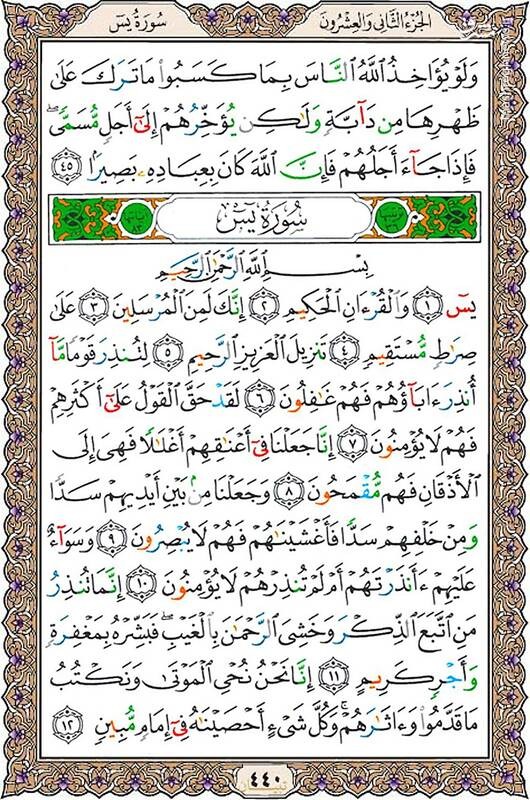 الجزء الثاني والعشرون
سورة يس
وَلَوْ يُؤَاخِذُ اللَّهُ النَّاسَ بِمَا كَسَبُوا مَا تَرَكَ عَلَىٰ
ظَهْرِهَا مِن دَابَّةٍ وَلَٰكِن يُؤَخِّرُهُمْ إِلَىٰ أَجَلٍ مُّسَمًّى ۖ
فَإِذَا جَاءَ أَجَلُهُمْ فَإِنَّ اللَّهَ كَانَ بِعِبَادِهِ بَصِيرًا ٤٥
سُورَةُ يس
بِسْمِ اللَّهِ الرَّحْمَٰنِ الرَّحِيمِ
يسٓ ١ وَالْقُرْءَانِ الْحَكِيمِ ٢ إِنَّكَ لَمِنَ الْمُرْسَلِينَ ٣ عَلَىٰ
صِرَاطٍ مُّسْتَقِيمٍ ٤ تَنزِيلَ الْعَزِيزِ الرَّحِيمِ ٥ لِتُنذِرَ قَوْمًا مَّا
أُنذِرَ ءَابَاؤُهُمْ فَهُمْ غَافِلُونَ ٦ لَقَدْ حَقَّ الْقَوْلُ عَلَىٰ أَكْثَرِهِمْ
فَهُمْ لَا يُؤْمِنُونَ ٧ إِنَّا جَعَلْنَا فِي أَعْنَاقِهِمْ أَغْلَالًا فَهِيَ إِلَى
الْأَذْقَانِ فَهُم مُّقْمَحُونَ ٨ وَجَعَلْنَا مِن بَيْنِ أَيْدِيهِمْ سَدًّا
وَمِنْ خَلْفِهِمْ سَدًّا فَأَغْشَيْنَاهُمْ فَهُمْ لَا يُبْصِرُونَ ٩ وَسَوَاءٌ
عَلَيْهِمْ ءَأَنذَرْتَهُمْ أَمْ لَمْ تُنذِرْهُمْ لَا يُؤْمِنُونَ ١٠ إِنَّمَا تُنذِرُ
مَنِ اتَّبَعَ الذِّكْرَ وَخَشِيَ الرَّحْمَٰنَ بِالْغَيْبِ ۖ فَبَشِّرْهُ بِمَغْفِرَةٍ
وَأَجْرٍ كَرِيمٍ ١١ إِنَّا نَحْنُ نُحْيِ الْمَوْتَىٰ وَنَكْتُبُ
مَا قَدَّمُوا وَءَاثَارَهُمْ ۚ وَكُلَّ شَيْءٍ أَحْصَيْنَاهُ فِي إِمَامٍ مُّبِينٍ ١٢
٤٤٠